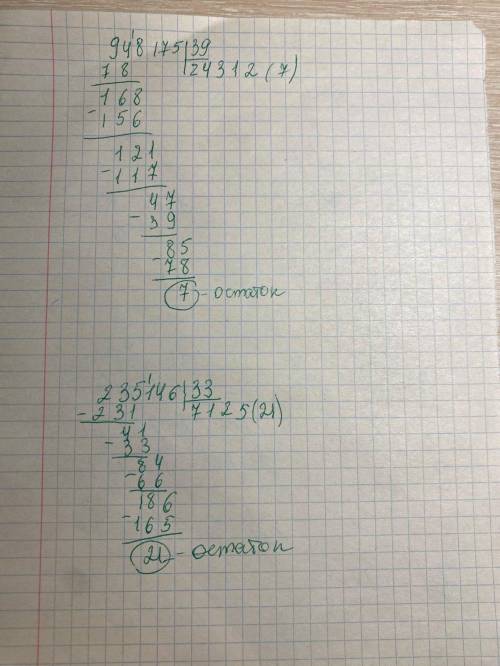 948'175 39
78 24312 (7)
168
-156
121
-117
47
-39
85
-78
7 - остаток
235'146 33
-231 7125(21)
41
-33
84
-66
186
-165
21 - остаток